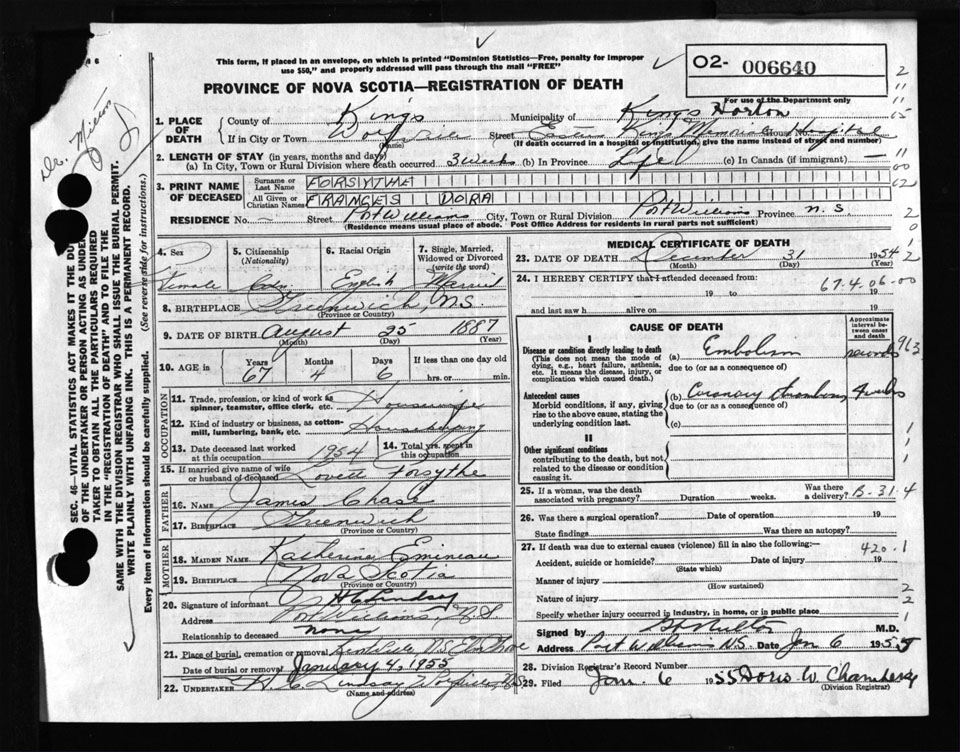 This form, if placed in an envelope, on which is printed "Dominion Statistics—Free, penalty for improper
use $50," and properly addressed will pass through the mail "FREE"
O2- 006640
For use of the Department only
PROVINCE OF NOVA SCOTIA—REGISTRATION OF DEATH
Dr. Milton
1. PLACE OF DEATH County of Kings Municipality of Kings Horton
If in City or Town Wolfville (Name) Street Eastern Kings Memorial House No. Hospital
(If death occurred in a hospital or institution, give the name instead of street and number)
2. LENGTH OF STAY (in years, months and days)
(a) In City, Town or Rural Division where death occurred 3 weeks (b) In Province Life (c) In Canada (if immigrant) —
3. PRINT NAME OF DECEASED Surname or Last Name FORSYTHE
All Given or Christian Names FRANCES DORA
RESIDENCE No. — Street Port Williams City, Town or Rural Division Port Williams Province N.S.
(Residence means usual place of abode. Post Office Address for residents in rural parts not sufficient)
4. Sex 5. Citizenship (Nationality) 6. Racial Origin 7. Single, Married, Widowed or Divorced (write the word)
Female Cdn. English Married
8. BIRTHPLACE Greenwich, N.S.
(Province or Country)
9. DATE OF BIRTH August 25 1887
(Month) (Day) (Year)
10. AGE Years 67 Months 4 Days 6 If less than one day old hrs. or min.
OCCUPATION
11. Trade, profession, or kind of work as spinner, teamster, office clerk, etc. Housewife
12. Kind of industry or business, as cotton-mill, lumbering, bank, etc. Housekeeping
13. Date deceased last worked at this occupation 1954 14. Total yrs. spent in this occupation
15. If married give name of wife or husband of deceased Lovett Forsythe
FATHER
16. NAME James Chase
17. BIRTHPLACE Greenwich
(Province or Country)
MOTHER
18. MAIDEN NAME Katherine Emineau
19. BIRTHPLACE Nova Scotia
(Province or Country)
20. Signature of informant H C Lindsay
Address Port Williams, N.S.
Relationship to deceased none
21. Place of burial, cremation or removal Kentville N.S. Elm Grove
Date of burial or removal January 4, 1955
22. UNDERTAKER H. C. Lindsay Wolfville, N.S.
(Name and address)
MEDICAL CERTIFICATE OF DEATH
23. DATE OF DEATH December 31 1954
(Month) (Day) (Year)
24. I HEREBY CERTIFY that I attended deceased from:
67.4.06.00
19 to 19
and last saw h alive on 19
CAUSE OF DEATH
Approximate interval between onset and death
I
Disease or condition directly leading to death (a) Embolism
(This does not mean the mode of dying, e.g., heart failure, asthenia, etc. It means the disease, injury, or complication which caused death.)
due to (or as a consequence of)
963
Antecedent causes (b) Coronary thrombosis 4 weeks
Morbid conditions, if any, giving rise to the above cause, stating the underlying condition last.
due to (or as a consequence of)
(c)
II
Other significant conditions
contributing to the death, but not related to the disease or condition causing it.
25. If a woman, was the death associated with pregnancy? Duration weeks. Was there a delivery? B-31-4
26. Was there a surgical operation? Date of operation 19
State findings Was there an autopsy?
27. If death was due to external causes (violence) fill in also the following: 420.1
Accident, suicide or homicide? Date of injury 19
(State which)
Manner of injury
(How sustained)
Nature of injury
Specify whether injury occurred in industry, in home, or in public place
Signed by M.D.
Address Port Williams N.S. Date Jan 6 1955
28. Division Registrar's Record Number
29. Filed Jan. 6 1955 Doris W. Chambers
(Division Registrar)
SEC. 46—VITAL STATISTICS ACT MAKES IT THE DU
OF THE UNDERTAKER OR PERSON ACTING AS UNDER
TAKER TO OBTAIN ALL THE PARTICULARS REQUIRED
IN THE "REGISTRATION OF DEATH" AND TO FILE THE
SAME WITH THE DIVISION REGISTRAR WHO SHALL ISSUE THE BURIAL PERMIT.
WRITE PLAINLY WITH UNFADING INK. THIS IS A PERMANENT RECORD.
Every item of Information should be carefully supplied. (See reverse side for instructions.)